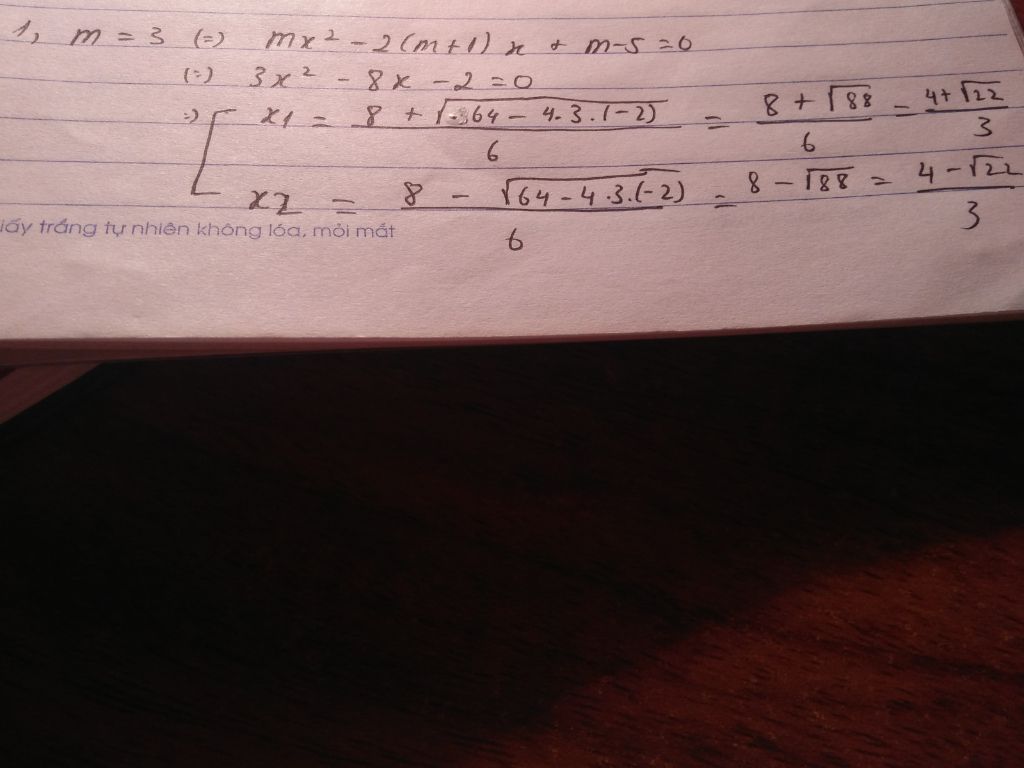 1, m = 3 (=) mx² - 2(m+1)x + m-5 = 0
(=) 3x² - 8x - 2 = 0
=) [ x1 = (8 + √(64 - 4.3.(-2)))/6 = (8 + √88)/6 = (4+√22)/3
x2 = (8 - √(64 - 4.3.(-2)))/6 = 8 - √88 = (4 - √22)/3
iấy trắng tự nhiên không lóa, mỏi mắt